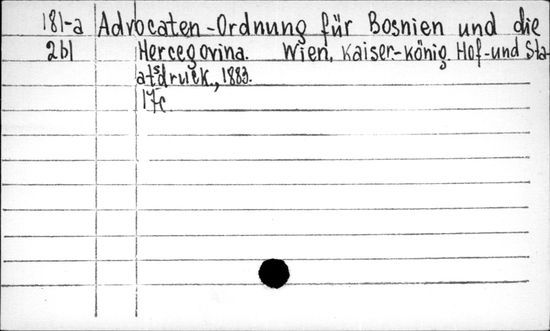 181-a Advocaten-Ordnung für Bosnien und die
261 Hercegovina. Wien, Kaiser-König. Hof-und Sta-
atsdruck., 1883.
17c